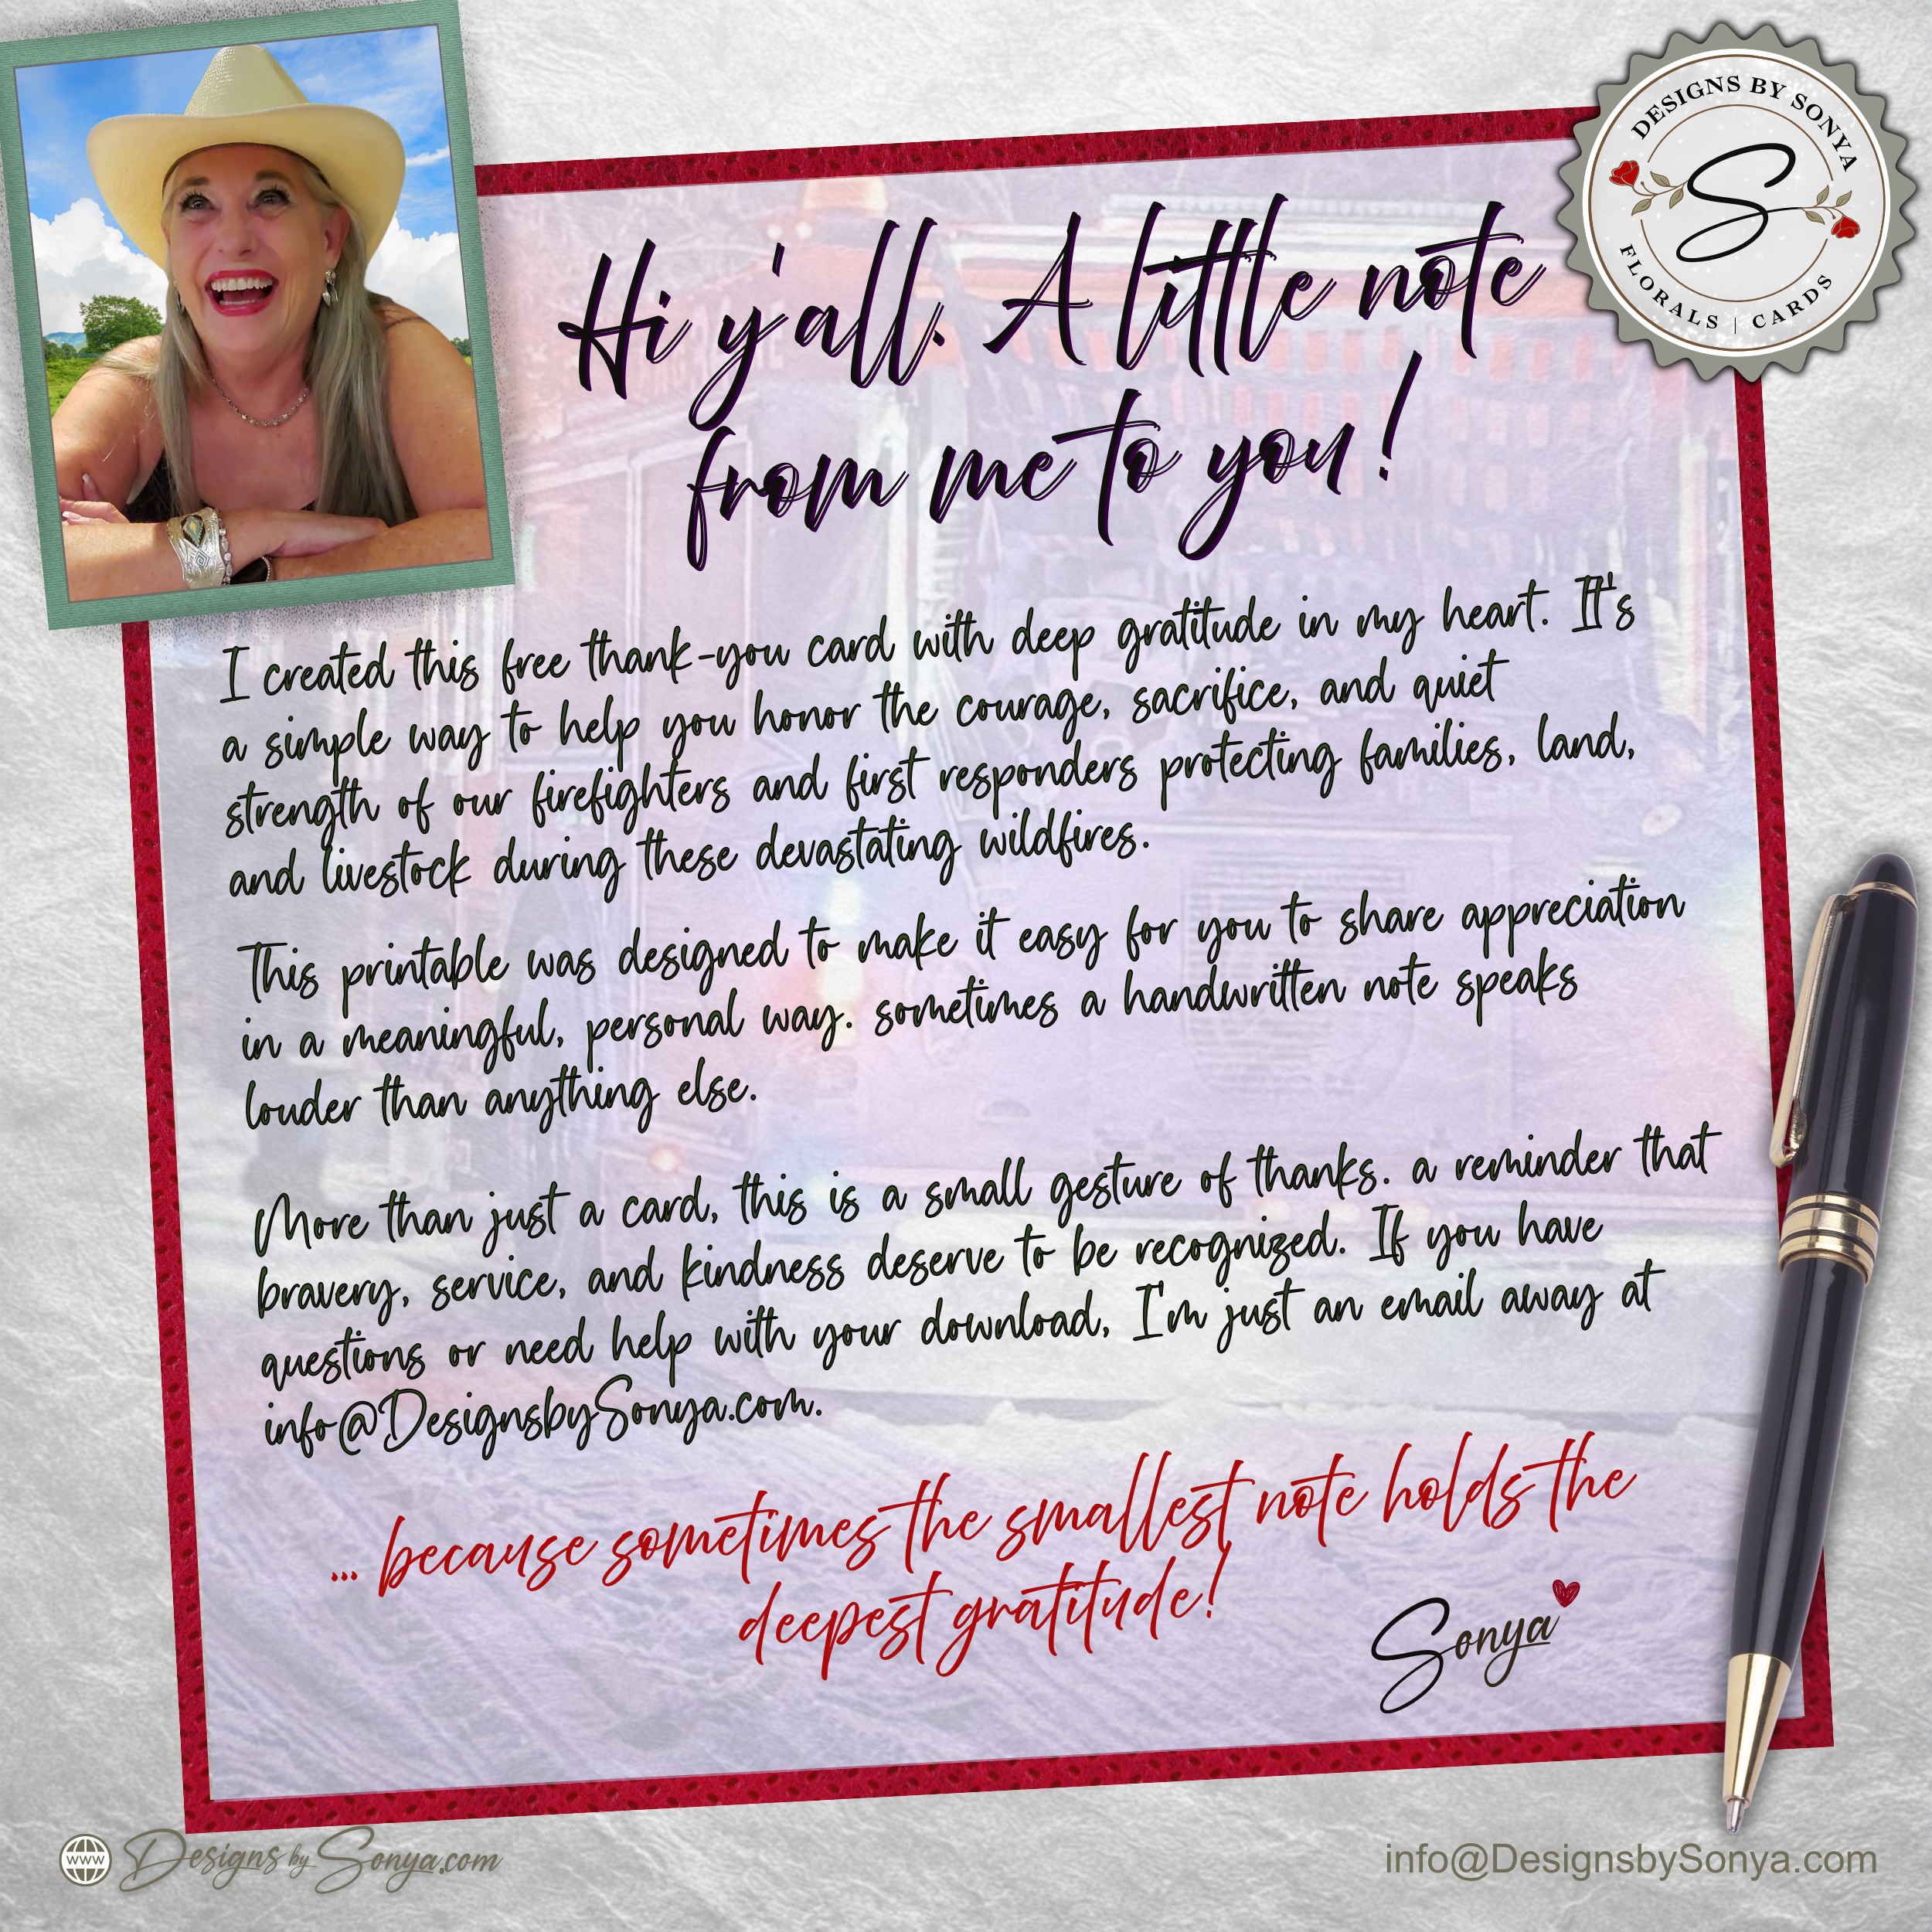 DESIGNS BY SONYA
S
FLORALS | CARDS
Hi y'all. A little note
from me to you!
I created this free thank-you card with deep gratitude in my heart. It's
a simple way to help you honor the courage, sacrifice, and quiet
strength of our firefighters and first responders protecting families, land,
and livestock during these devastating wildfires.
This printable was designed to make it easy for you to share appreciation
in a meaningful, personal way. sometimes a handwritten note speaks
louder than anything else.
More than just a card, this is a small gesture of thanks. a reminder that
bravery, service, and kindness deserve to be recognized. If you have
questions or need help with your download, I'm just an email away at
info@DesignsbySonya.com.
... because sometimes the smallest note holds the
deepest gratitude!
Sonya
www DesignsbySonya.com
info@DesignsbySonya.com